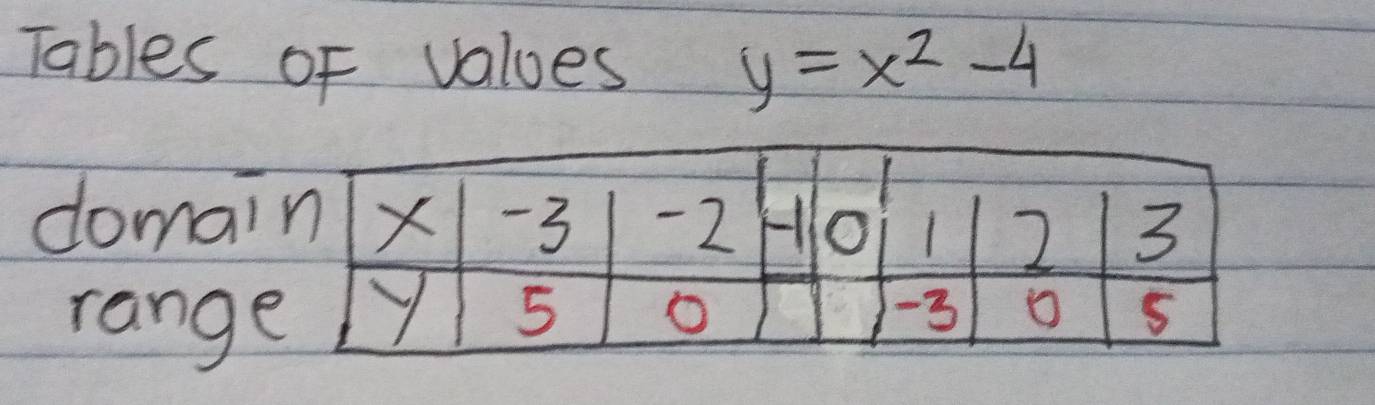 Tables OF Values y = x² - 4
domain x -3 -2 -1 0 1 2 3
range y 5 0 -3 0 5